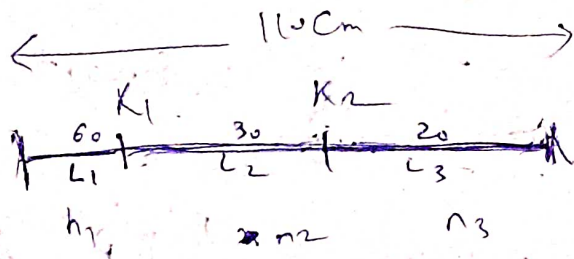 110 Cm
K1 K2
60 30 20
L1 L2 L3
n1 n2 n3